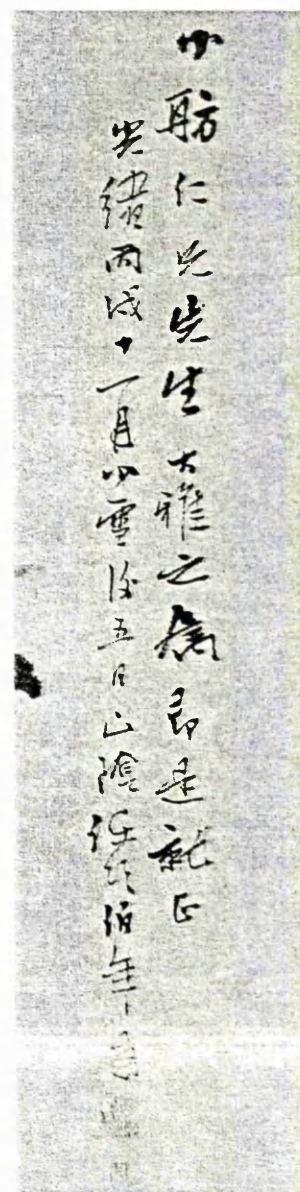 少舫仁兄先生大雅之属即是就正
光緒丙戌十一月小雪後五日山陰任頤伯年